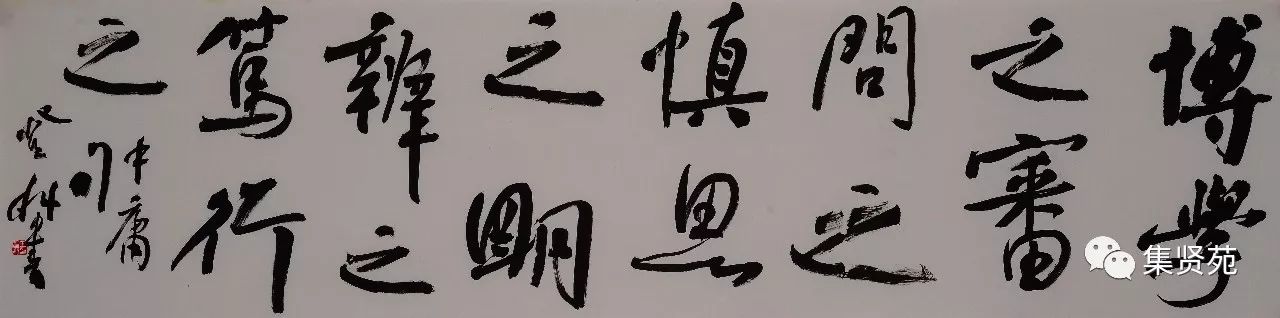 博學
之審
問之
慎思
之明
辨之
篤行
之
中庸
句
書
集贤苑